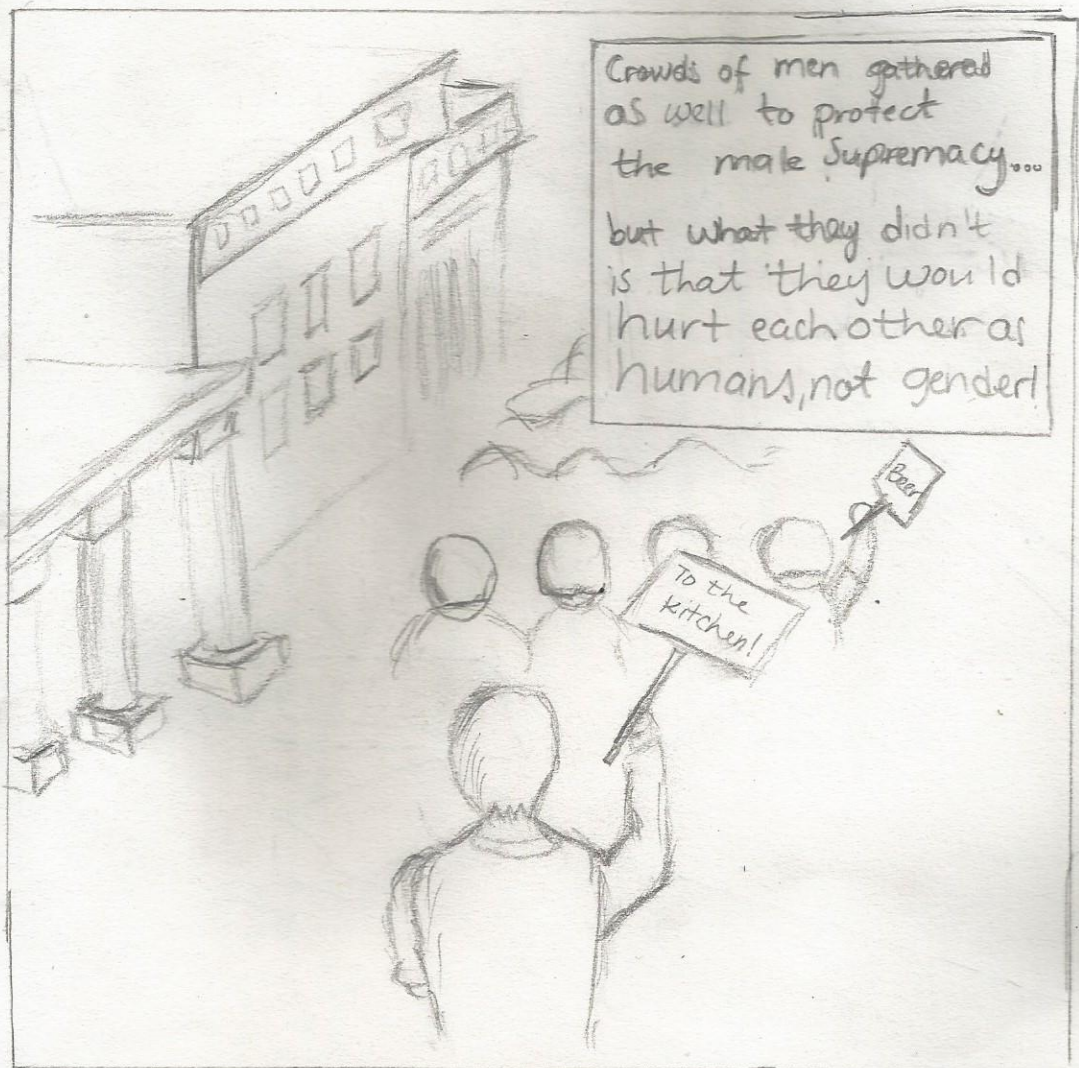 Crowds of men gathered
as well to protect
the male Supremacy...
but what they didn't
is that they would
hurt each other as
humans, not gender!
Beer
To the
kitchen!